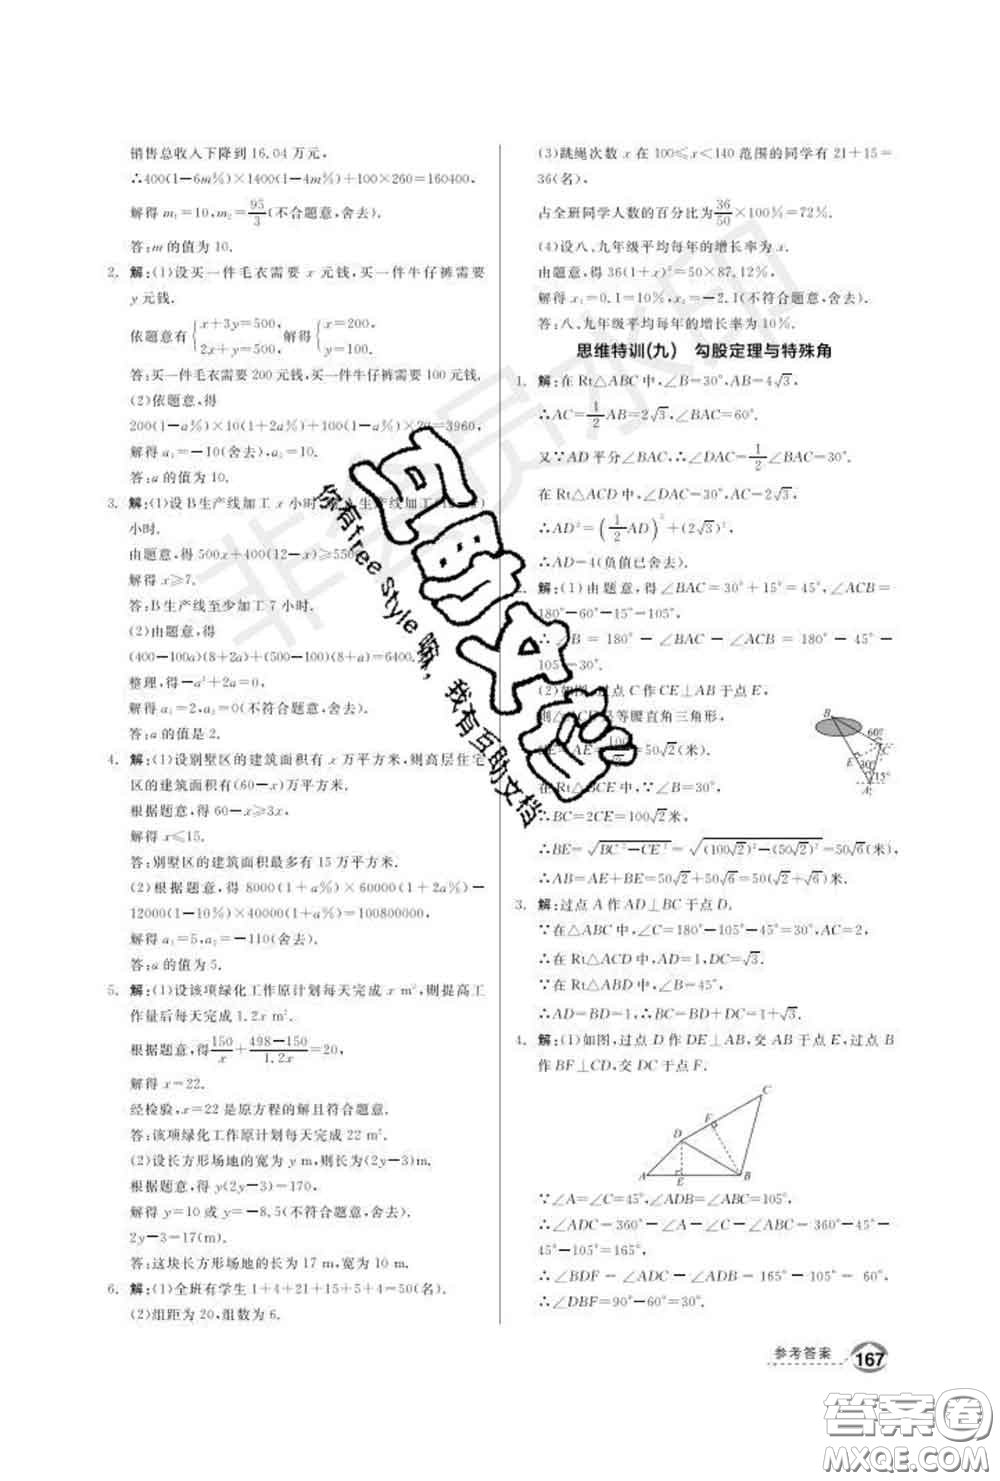 销售总收入下降到 16.04 万元,
∴400(1−6m%)×1400(1−4m%)+100×260=160400,
解得 m₁=10,m₂=95/3(不合题意,舍去).
答:m 的值为 10.
2. 解:(1)设买一件毛衣需要 x 元钱,买一件牛仔裤需要
y 元钱.
依题意有{x+3y=500, 2x+y=500, 解得{x=200, y=100.
答:买一件毛衣需要 200 元钱,买一件牛仔裤需要 100 元钱.
(2)依题意,得
200(1−a%)×10(1+2a%)+100(1−a%)×20=3960,
解得 a₁=−10(舍去),a₂=10.
答:a 的值为 10.
3. 解:(1)设 B 生产线加工 x 小时, 生产线加工
小时.
由题意,得 500x+400(12−x)≥550
解得 x≥7.
答:B 生产线至少加工 7 小时.
(2)由题意,得
(400−100a)(8+2a)+(500−100)(8+a)=6400.
整理,得−a²+2a=0,
解得 a₁=2,a₂=0(不符合题意,舍去).
答:a 的值是 2.
4. 解:(1)设别墅区的建筑面积有 x 万平方米,则高层住宅
区的建筑面积有(60−x)万平方米.
根据题意,得 60−x≥3x,
解得 x≤15.
答:别墅区的建筑面积最多有 15 万平方米.
(2)根据题意,得 8000(1+a%)×60000(1+a%)−
12000(1−10%)×40000(1+a%)=100800000,
解得 a₁=5,a₂=−110(舍去).
答:a 的值为 5.
5. 解:(1)设该项绿化工作原计划每天完成 x m²,则提高工
作量后每天完成 1.2x m².
根据题意,得150/x+(498−150)/1.2x=20,
解得 x=22.
经检验,x=22 是原方程的解且符合题意.
答:该项绿化工作原计划每天完成 22 m².
(2)设长方形场地的宽为 y m,则长为(2y−3)m.
根据题意,得 y(2y−3)=170,
解得 y=10 或 y=−8.5(不符合题意,舍去).
2y−3=17(m).
答:这块长方形场地的长为 17 m,宽为 10 m.
6. 解:(1)全班有学生 1+4+21+15+5+4=50(名).
(2)组距为 20,组数为 6.
(3)跳绳次数 x 在 100≤x<140 范围的同学有 21+15=
36(名),
占全班同学人数的百分比为36/50×100%=72%.
(4)设八、九年级平均每年的增长率为 x.
由题意,得 36(1+x)²=50×87.12%,
解得 x₁=0.1=10%,x₂=−2.1(不符合题意,舍去).
答:八、九年级平均每年的增长率为 10%.
思维特训(九) 勾股定理与特殊角
1. 解:在 Rt△ABC 中,∠B=30°,AB=4√3,
∴AC=1/2AB=2√3,∠BAC=60°.
又∵AD 平分∠BAC,∴∠DAC=1/2∠BAC=30°.
在 Rt△ACD 中,∠DAC=30°,AC=2√3,
∴AD²=(1/2AD)²+(2√3)²,
∴AD=4(负值已舍去).
解:(1)由题意,得∠BAC=30°+15°=45°,∠ACB=
180°−60°−15°=105°,
∴∠B=180°−∠BAC−∠ACB=180°−45°−
105°=30°.
(2)如图,过点 C 作 CE⊥AB 于点 E,
则 等腰直角三角形,
=50√2(米).
在 Rt△BCE 中,∵∠B=30°,
∴BC=2CE=100√2米,
∴BE=√(BC²−CE²)=√((100√2)²−(50√2)²)=50√6(米),
∴AB=AE+BE=50√2+50√6=50(√2+√6)米.
3. 解:过点 A 作 AD⊥BC 于点 D.
∵在△ABC 中,∠C=180°−105°−45°=30°,AC=2,
∴在 Rt△ACD 中,AD=1,DC=√3.
∵在 Rt△ABD 中,∠B=45°,
∴AD=BD=1,∴BC=BD+DC=1+√3.
4. 解:(1)如图,过点 D 作 DE⊥AB,交 AB 于点 E,过点 B
作 BF⊥CD,交 DC 于点 F.
∵∠A=∠C=45°,∠ADB=∠ABC=105°,
∴∠ADC=360°−∠A−∠C−∠ABC=360°−45°−
45°−105°=165°,
∴∠BDF=∠ADC−∠ADB=165°−105°=60°,
∴∠DBF=90°−60°=30°.
B
60°
C
E
30°
15°
A
C
F
D
A
E
B
参考答案 167
非会员水印
你有free style嘛,我有互助文档
答案圈
MXQE.COM